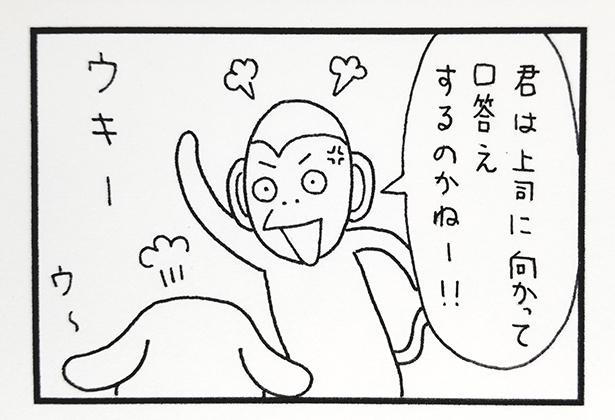 君は上司に向かって
口答え
するのかねー!!
ウキー
ウ〜